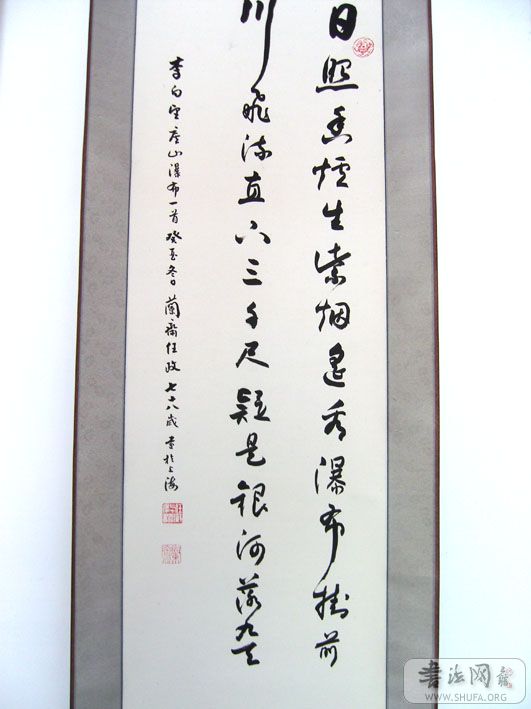 日照香爐生紫烟遥看瀑布掛前
川飛流直下三千尺疑是銀河落九天
李白望庐山瀑布一首癸酉冬日蘭齋任政七十八歲書於上海
書法网
WWW.SHUFA.ORG